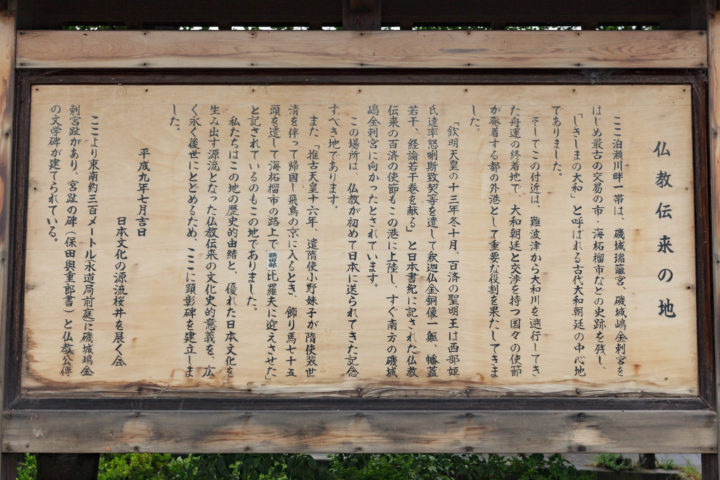 仏教伝来の地
ここ泊瀬川畔一帯は、磯城瑞籬宮、磯城嶋金刺宮を
はじめ最古の交易の市・海柘榴市などの史跡を残し、
「しきしまの大和」と呼ばれる古代大和朝廷の中心地
でありました。
そしてこの付近は、難波津から大和川を遡行してき
た舟運の終着地で、大和朝廷と交渉を持つ国々の使節
が発着する都の外港として重要な役割を果たしてきま
した。
「欽明天皇の十三年冬十月、百済の聖明王は西部姫
氏達率怒唎斯致契等を遣して釈迦仏金銅像一軀、幡蓋
若干、経論若干巻を献る」と日本書紀に記された仏教
伝来の百済の使節もこの港に上陸し、すぐ南方の磯城
嶋金刺宮に向かったとされています。
この場所は、仏教が初めて日本に送られてきた記念
すべき地であります。
また「推古天皇十六年、遣隋使小野妹子が隋使裴世
清を伴って帰国し飛鳥の京に入るとき、飾り馬七十五
頭を遣して海柘榴市の路上で額田部比羅夫に迎えさせた」
と記されているのもこの地でありました。
私たちはこの地の歴史的由緒と、優れた日本文化を
生み出す源流となった仏教伝来の文化史的意義を、広
く永く後世にとどめるため、ここに顕彰碑を建立しま
した。
平成九年七月吉日
日本文化の源流桜井を展く会
ここより東南約三百メートル(水道局前庭)に磯城嶋金
刺宮趾があり、宮趾の碑(保田與重郎書)と仏教公傳
の文学碑が建てられている。